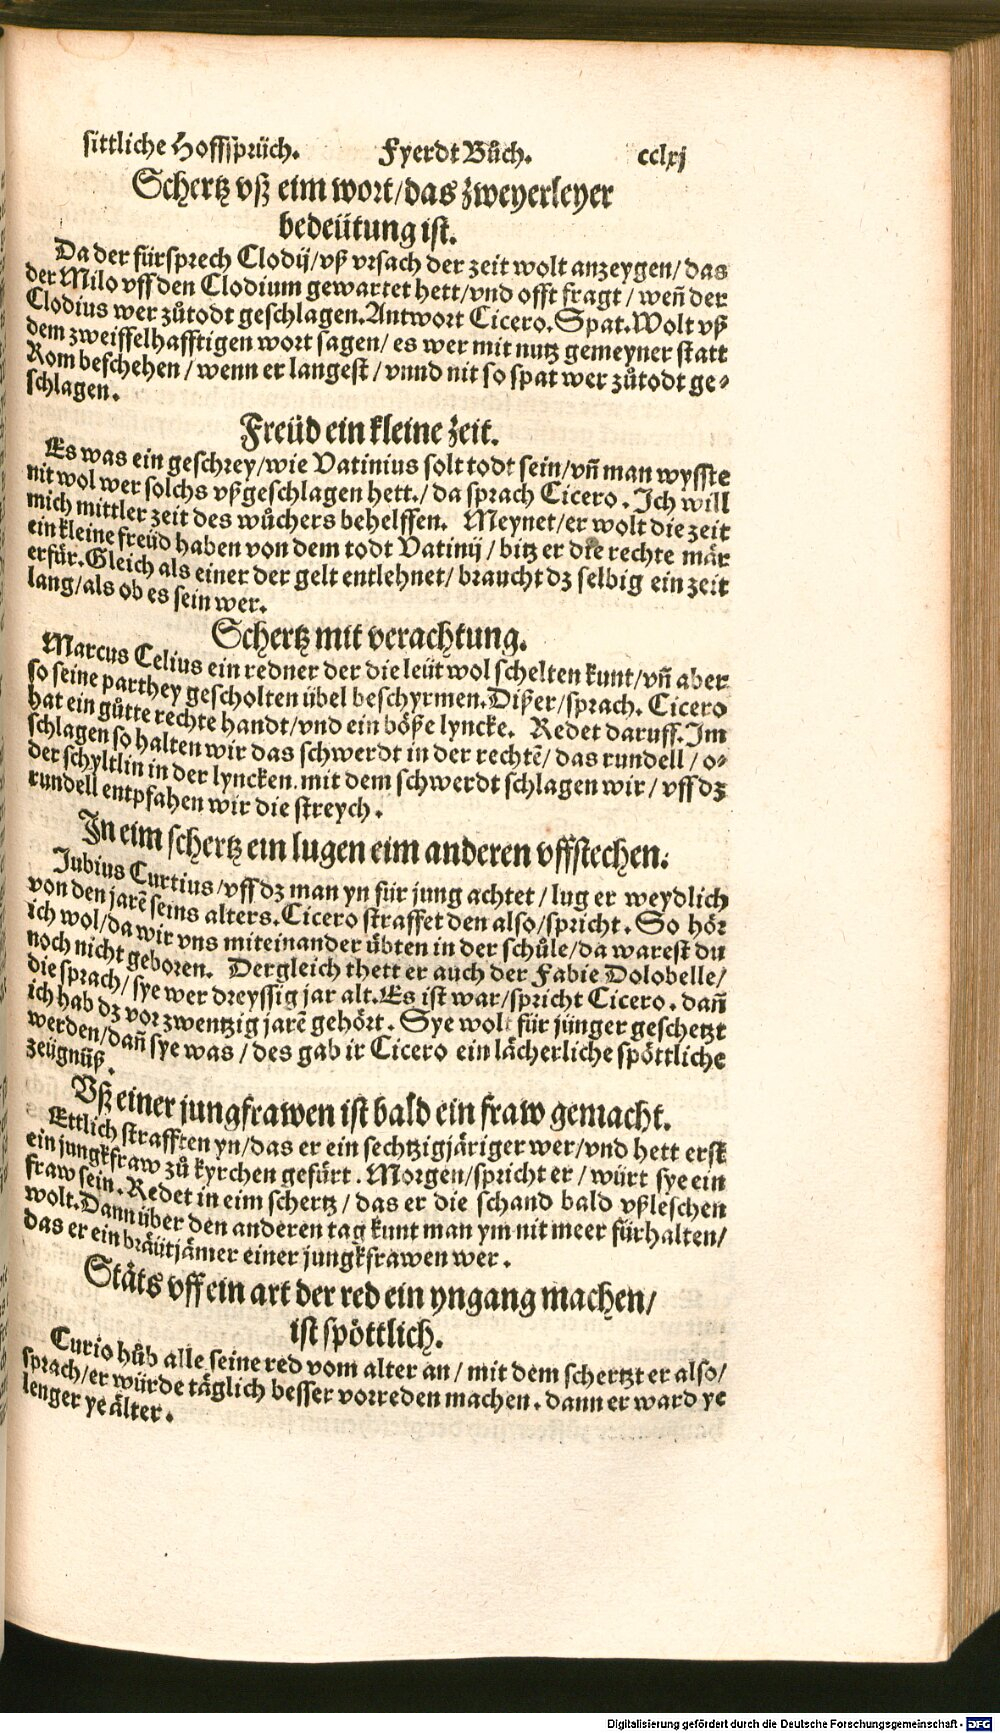 sittliche Hoffsprüch. Fyerdt Bůch. cclxj
Schertz vß eim wort/das zweyerleyer
bedeütung ist.
Da der fürsprech Clodij/vß vrsach der zeit wolt anzeygen/das
der Milo vff den Clodium gewartet hett/vnd offt fragt/weñ der
Clodius wer zůtodt geschlagen.Antwort Cicero.Spat.Wolt vß
dem zweiffelhafftigen wort sagen/es wer mit nutz gemeyner statt
Rom beschehen/wenn er langest/vnnd nit so spat wer zůtodt ge⸗
schlagen.
Freüd ein kleine zeit.
Es was ein geschrey/wie Vatinius solt todt sein/vñ man wysste
nit wol wer solchs vßgeschlagen hett./da sprach Cicero. Ich will
mich mittler zeit des wůchers behelffen. Meynet/er wolt die zeit
ein kleine freüd haben von dem todt Vatinij/bitz er die rechte mär
erfür.Gleich als einer der gelt entlehnet/braucht dz selbig ein zeit
lang/als ob es sein wer.
Schertz mit verachtung.
Marcus Celius ein redner der die leüt wol schelten kunt/vñ aber
so seine parthey gescholten übel beschyrmen.Dißer/sprach. Cicero
hat ein gůtte rechte handt/vnd ein böße lyncke. Redet daruff.Im
schlagen so halten wir das schwerdt in der rechtē/das rundell/o⸗
der schyltlin in der lyncken.mit dem schwerdt schlagen wir/vff dz
rundell entpfahen wir die streych.
In eim schertz ein lugen eim anderen vffstechen.
Jubius Curtius/vff dz man yn für jung achtet/lug er weydlich
von den jarē seins alters.Cicero straffet den also/spricht. So hör
ich wol/da wir vns miteinander übten in der schůle/da warest du
noch nicht geboren. Dergleich thett er auch der Fabie Dolobelle/
die sprach/sye wer dreyssig jar alt.Es ist war/spricht Cicero.dañ
ich hab dz vor zwentzig jarē gehört. Sye wolt für jünger geschetzt
werden/dañ sye was/des gab ir Cicero ein lächerliche spöttliche
zeügnüß.
Vß einer jungfrawen ist bald ein fraw gemacht.
Ettlich strafften yn/das er ein sechtzigjäriger wer/vnd hett erst
ein jungkfraw zů kyrchen gefürt.Morgen/spricht er/würt sye ein
fraw sein.Redet in eim schertz/das er die schand bald vßleschen
wolt.Dann über den anderen tag kunt man ym nit meer fürhalten/
das er ein bräütjämer einer jungkfrawen wer.
Stäts vff ein art der red ein yngang machen/
ist spöttlich.
Curio hůb alle seine red vom alter an/mit dem schertzt er also/
sprach/er würde täglich besser vorreden machen.dann er ward ye
lenger ye älter.
Digitalisierung gefördert durch die Deutsche Forschungsgemeinschaft - DFG